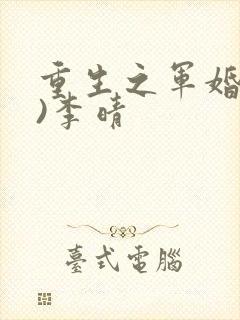 重生之军婚
)李晴
臺式電腦